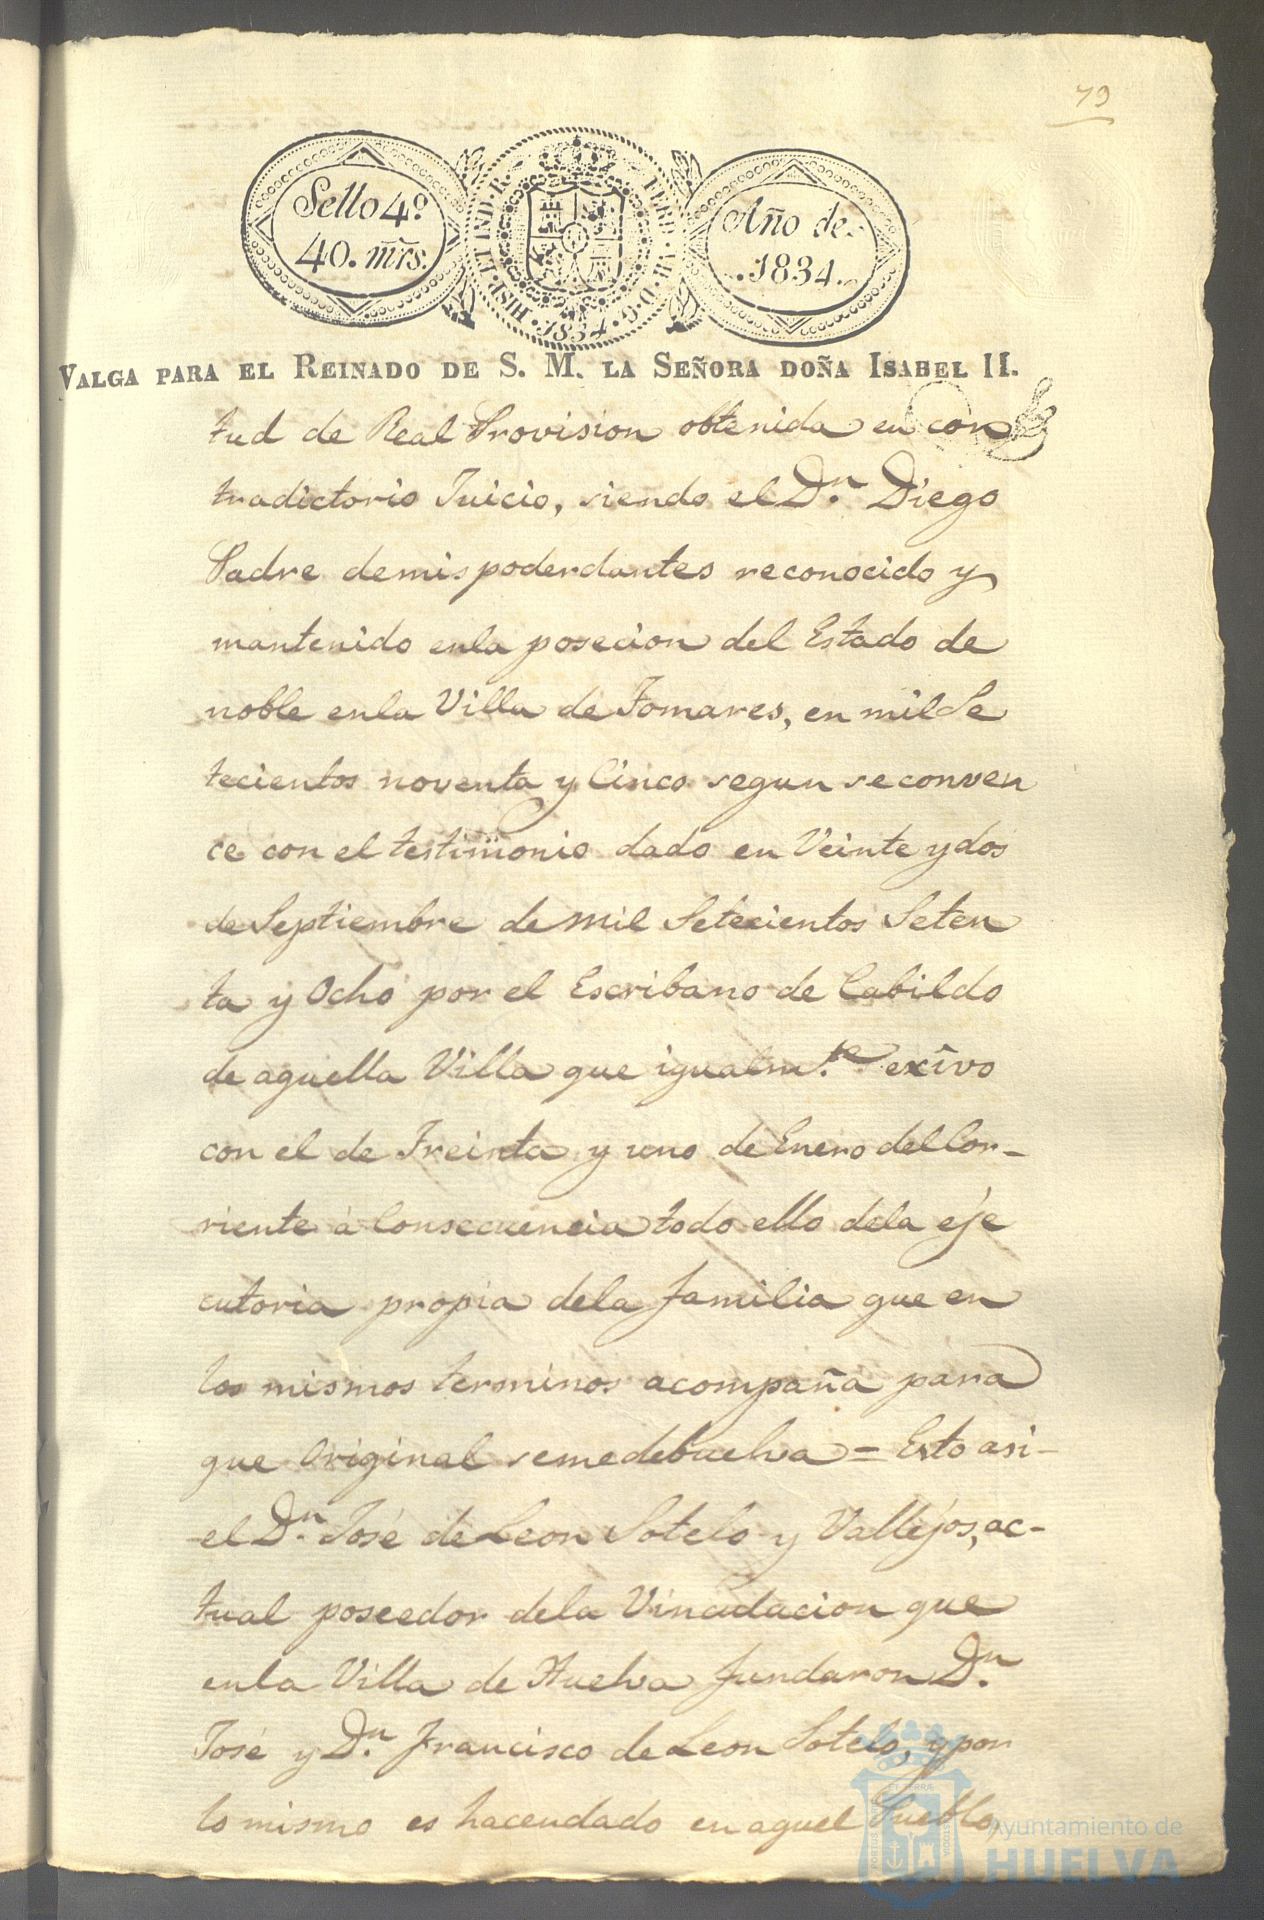 79
Sello 4º
40. mrs.
HISP. ET IND. R.
FERD. VII. D. G.
1834
Año de
1834.
VALGA PARA EL REINADO DE S. M. LA SEÑORA DOÑA ISABEL II.
tud de Real Provision obtenida en con
tradictorio Juicio, siendo el Dn. Diego
Padre demis poderdantes reconocido y
mantenido enla posecion del Estado de
noble enla Villa de Tomares, en mil Se
tecientos noventa y Cinco segun se conven
ce con el testimonio dado en Veinte y dos
de Septiembre de mil Setecientos Seten
ta y Ocho por el Escribano de Cabildo
de aquella Villa que igualm.te exivo
con el de Treinta y uno de Enero del Cor-
riente à Consecuencia todo ello dela eje
cutoria propia dela familia que en
los mismos terminos acompaña para
que Original semedebuelva = Esto asi-
el Dn. José de Leon Sotelo y Vallejos, ac-
tual poseedor dela Vinculacion que
enla Villa de Huelva fundaron Dn.
José y Dn. Francisco de Leon Sotelo, y por
lo mismo es hacendado en aquel Pueblo,
Ayuntamiento de
HUELVA